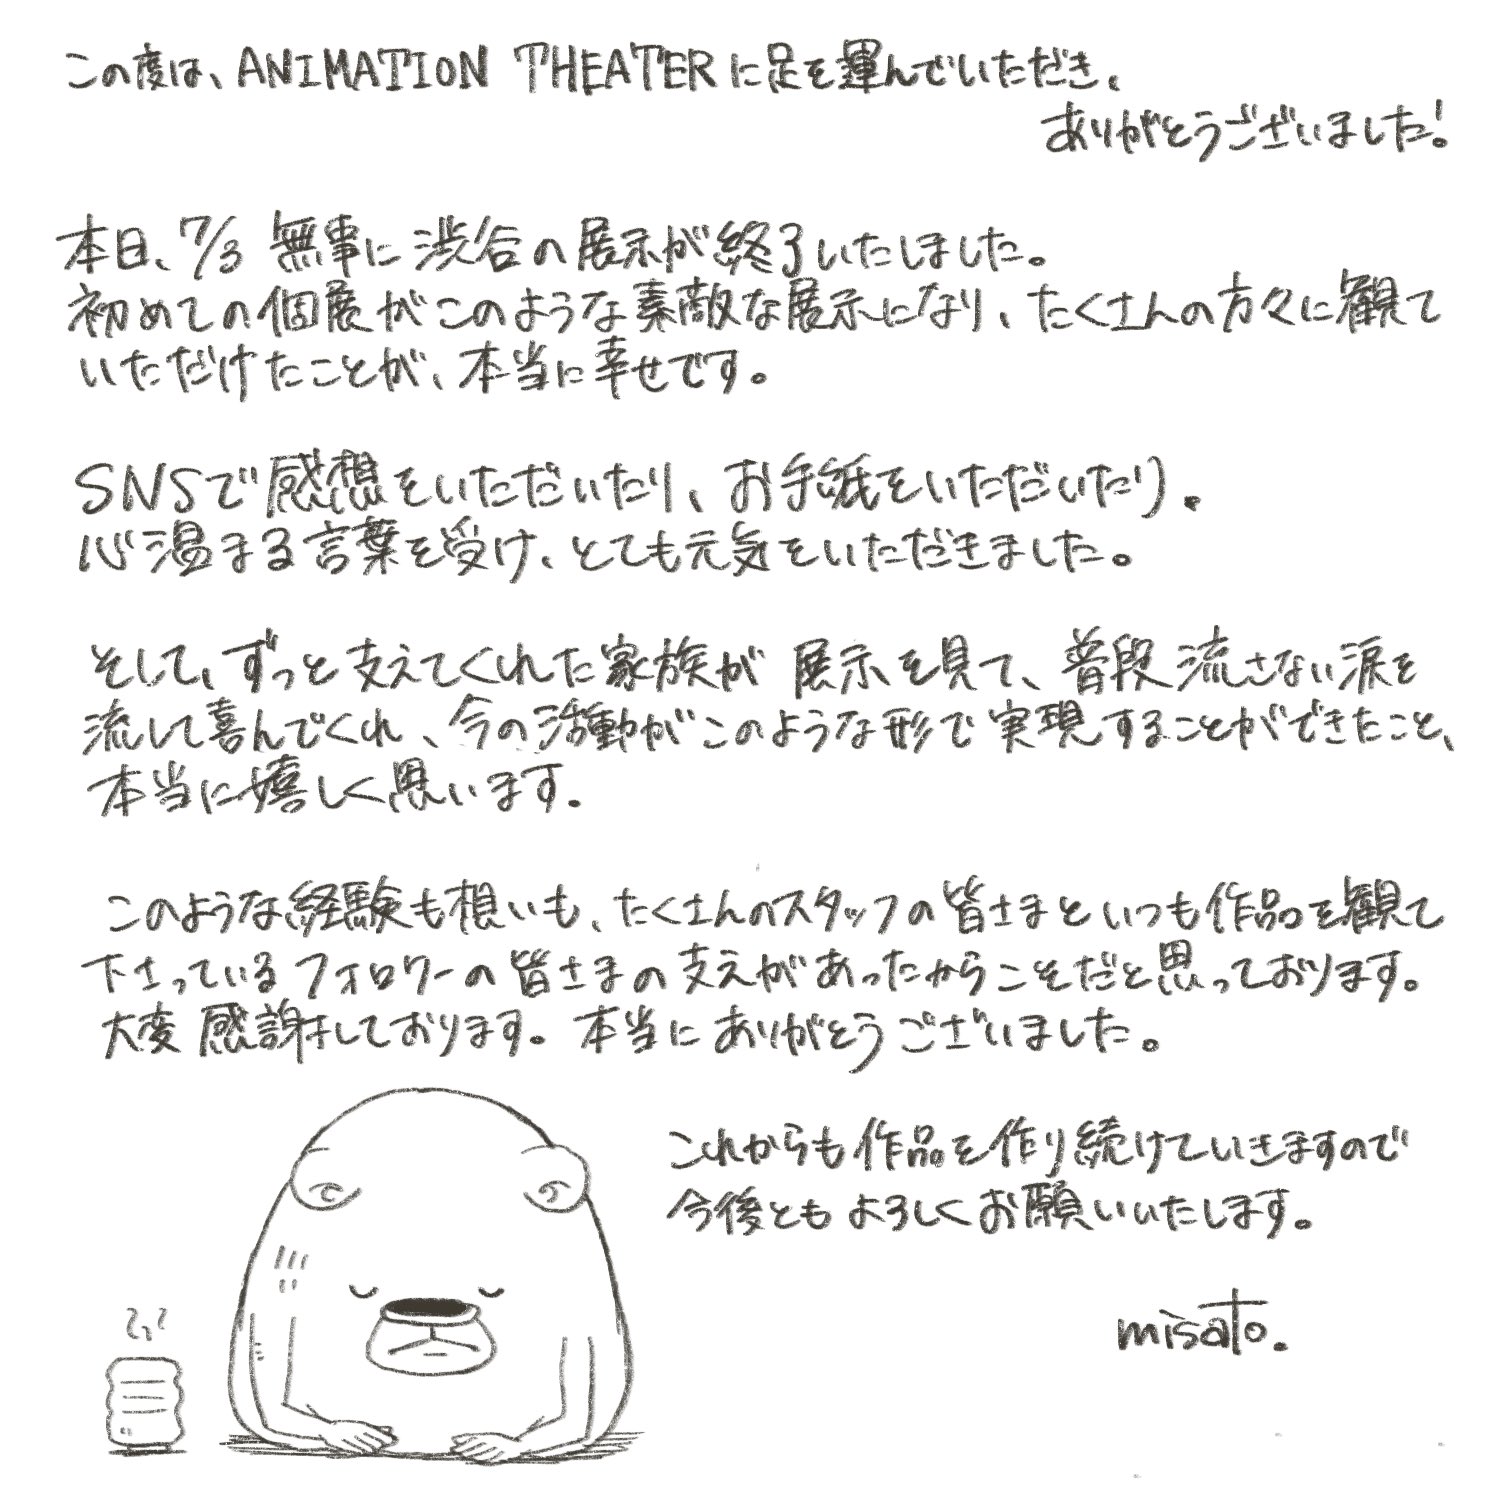 この度は、ANIMATION THEATERに足を運んでいただき、
ありがとうございました!
本日、7/3 無事に渋谷の展示が終了いたしました。
初めての個展がこのような素敵な展示になり、たくさんの方々に観て
いただけたことが、本当に幸せです。
SNSで感想をいただいたり、お手紙をいただいたり。
心温まる言葉を受け、とても元気をいただきました。
そして、ずっと支えてくれた家族が展示を見て、普段流さない涙を
流して喜んでくれ、今の活動がこのような形で実現することができたこと、
本当に嬉しく思います。
このような経験も想いも、たくさんのスタッフの皆さまといつも作品を観て
下さっているフォロワーの皆さまの支えがあったからこそだと思っております。
大変感謝しております。本当にありがとうございました。
これからも作品を作り続けていきますので
今後ともよろしくお願いいたします。
misato.